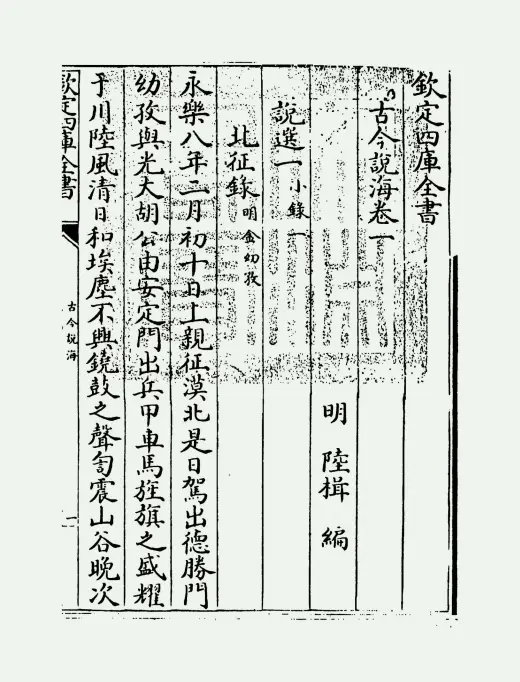 欽定四庫全書
古今說海卷一
明 陸楫 編
說選一 小錄一
北征錄 明 金幼孜
永樂八年二月初十日上親征漠北是日駕出德勝門
幼孜與光大胡公由安定門出兵甲車馬旌旗之盛耀
于川陸風清日和埃塵不興鐃鼓之聲訇震山谷晚次
欽定四庫全書
古今說海
一